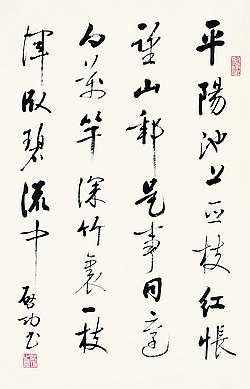 平陽池上亞枝紅悵
望山郵是事同還
向萬竿深竹裏一枝
渾臥碧流中
啟功书